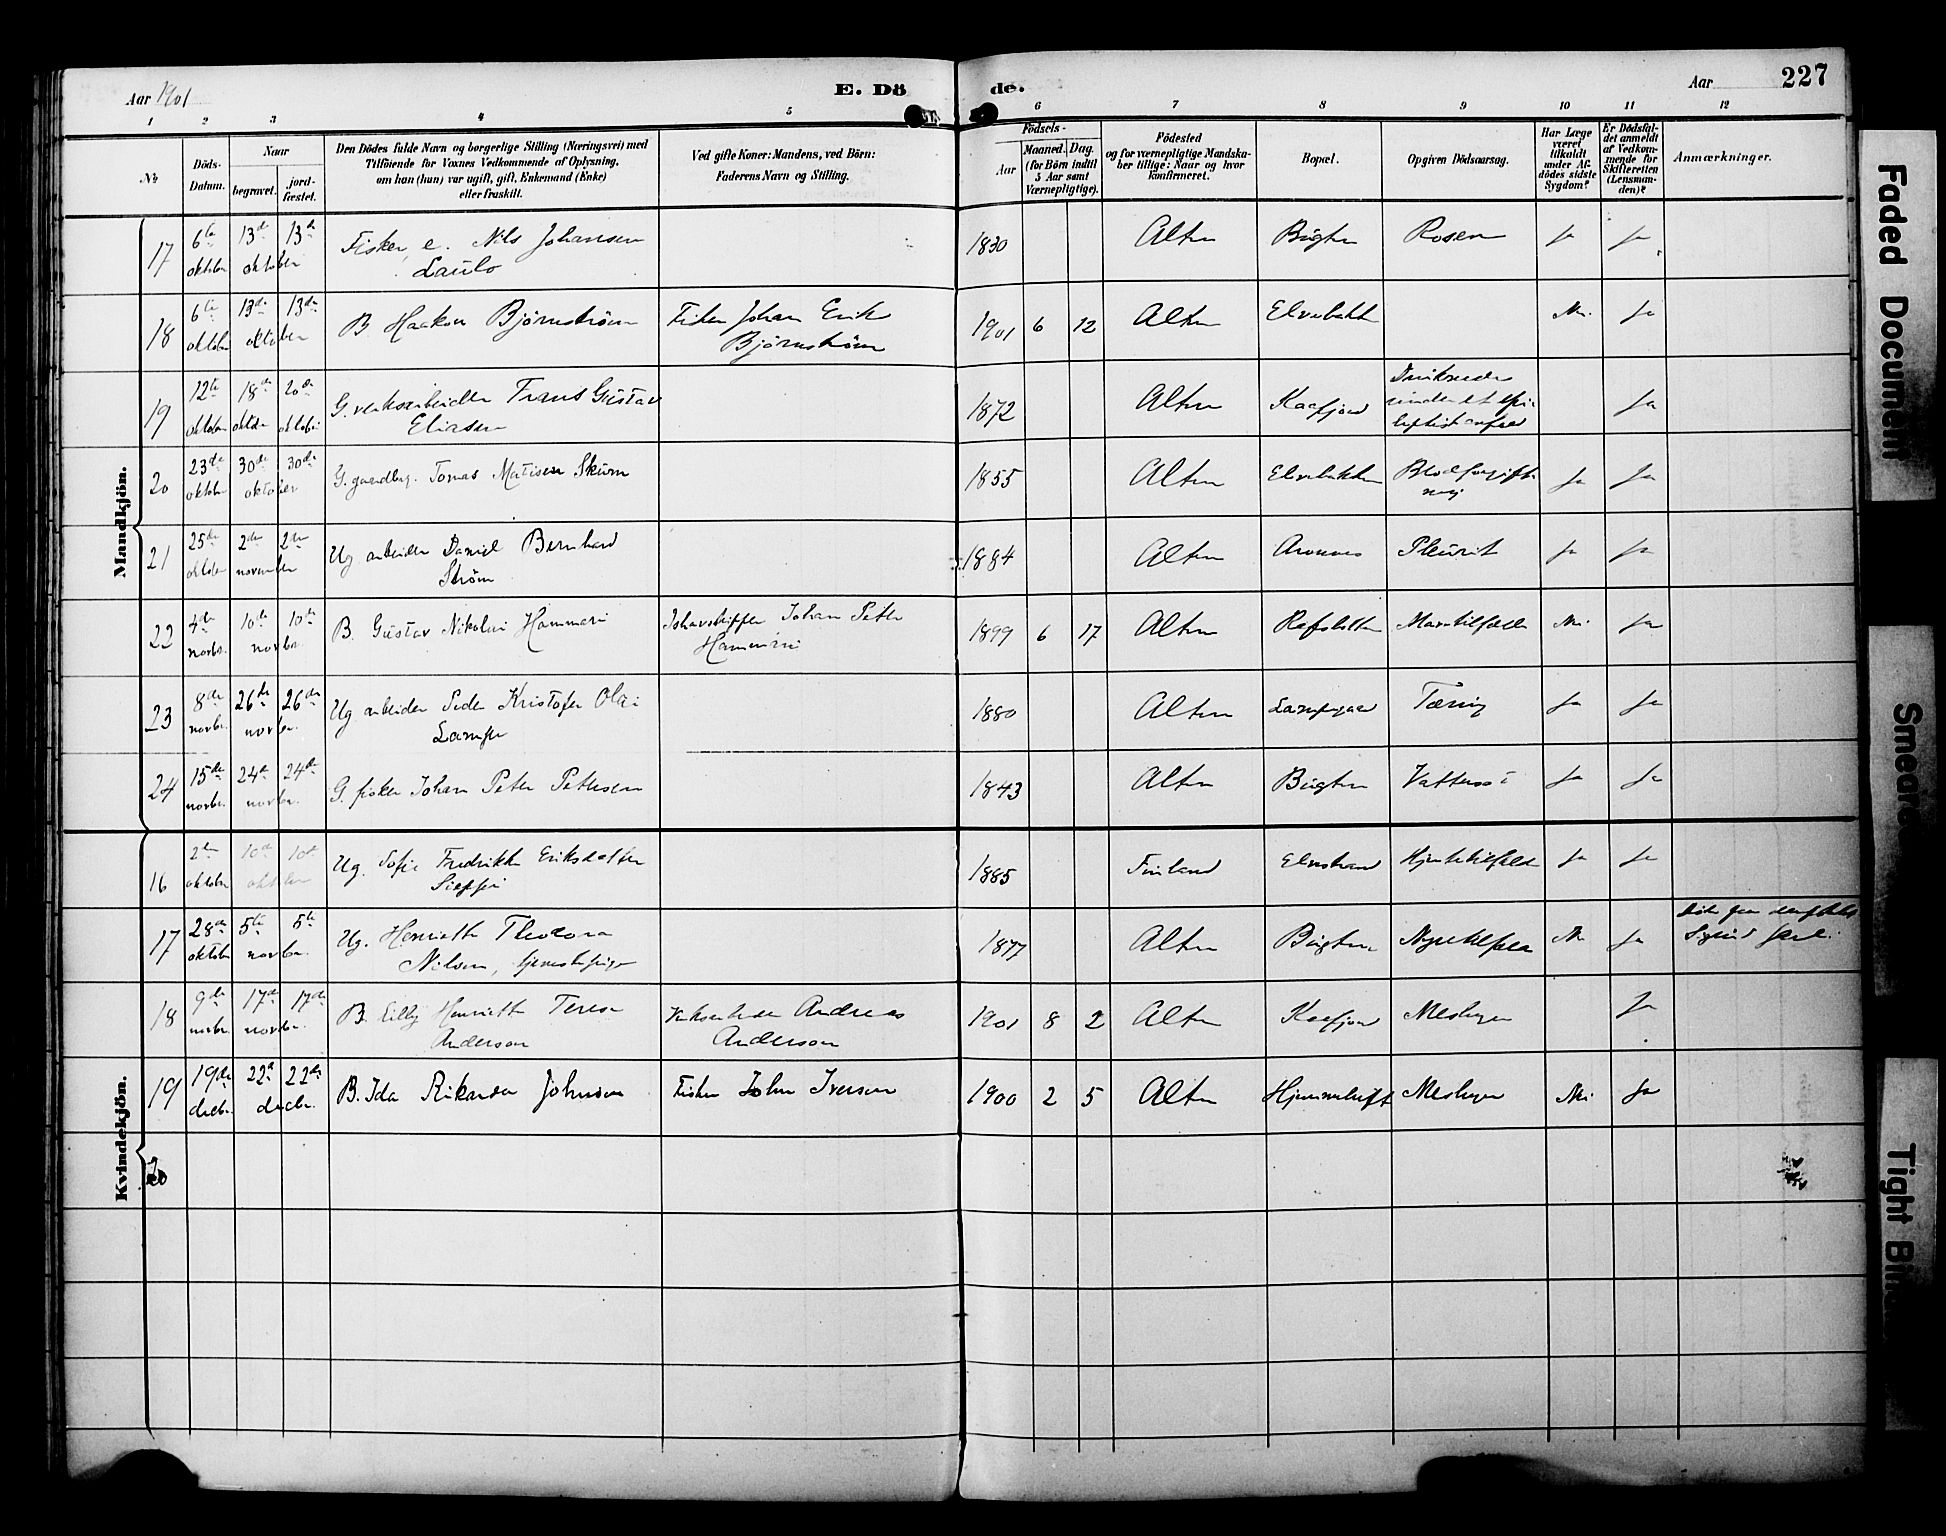 Aar 1901
E. Döde.
Aar
227
1 2 3 4 5 6 7 8 9 10 11 12
No
Döds-Datum.
Naar
begravet.
jord-fæstet.
Den Dödes fulde Navn og borgerlige Stilling (Næringsvei) med
Tilföiende for Voxnes Vedkommende af Oplysning,
om han (hun) var ugift, gift, Enkemand (Enke)
eller fraskilt.
Ved gifte Koner: Mandens, ved Börn:
Faderens Navn og Stilling.
Födsels-
Aar
Maaned. Dag.
(for Börn indtil
5 Aar samt
Værnepligtige).
Födested
og for værnepligtige Mandska-
ber tillige: Naar og hvor
konfirmeret.
Bopæl.
Opgiven Dödsaarsag.
Har Læge
været
tilkaldt
under Af-
dödes sidste
Sygdom?
Er Dödsfal-
det anmeldt
af Vedkom-
mende for
Skifteretten
(Lensman-
den)?
Anmærkninger.
Mandkjön.
17 6te oktober 13de 13de oktober Fisker, e. Nils Johansen Laulo 1830 Alten Bugten Rosen ja ja
18 6te oktober 13de 13de oktober B Haakon Bjørnstrøm Fisker Johan Erik Bjørnstrøm 1901 6 12 Alten Elvebakk Nei ja
19 12te oktober 18de oktober 20de oktober G. verksarbeider Frans Gustav Eliasen 1872 Alten Kaafjord Druknede under et epileptisk anfald ja
20 23de oktober 30de 30de oktober G. gaardbr. Tomas Matisen Skum 1855 Alten Elvebakken Blodforgiftning ja ja
21 25de oktober 2den 2den november Ug arbeider Daniel Bernhard Strøm 1884 Alten Aronnes Pleurit ja ja
22 4de novbr. 10de 10de novbr. B. Gustav Nikolai Hammari Ishavskipper Johan Peter Hammari 1899 6 17 Alten Rafsbotten Mavetilfælde Nei ja
23 8de novbr. 26de 26de novbr. Ug arbeider Peder Kristofer Olai Lampe 1880 Alten Lampegaard Tæring ja ja
24 15de novbr. 24de 24de novbr. G. fisker Johan Peter Pettersen 1843 Alten Bugten Vattersot ja ja
Kvindekjön.
16 2den oktober 10de 10de oktober Ug. Sofie Fredrikke Eriksdatter Sieppi 1885 Finland Elvestrand Hjertetilfælde ja ja
17 28de oktober 5te 5te novbr. Ug. Henriette Theodora Nilsen, tjenestepige 1877 Alten Bugten Nyretilfælde Nei ja
18 9de novbr. 17de 17de novbr. B. Lilly Henriette Terese Anderson Verksarbeider Andreas Anderson 1901 8 2 Alten Kaafjord Meslinger ja
19 19de decbr. 22de 22de decbr. B. Ida Rikarda Johnsen Fisker John Iversen 1900 2 5 Alten Hjemmeluft Meslinger Nei ja
20
Faded Document
Smeared
Tight Bi